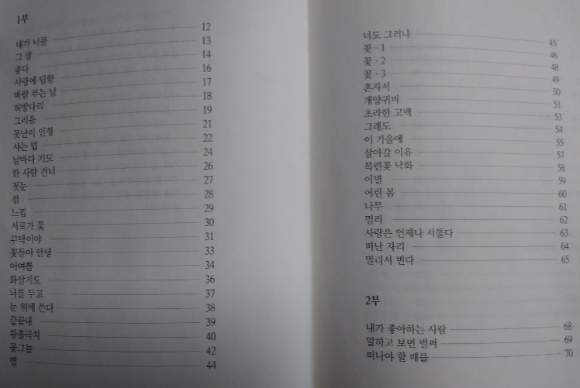 1부
내가 너를 12
그 말 13
좋다 14
사랑에 답함 16
바람 부는 날 17
허방다리 18
그리움 19
못난이 인형 21
사는 법 22
날마다 기도 24
한 사람 건너 26
첫눈 27
섬 28
느낌 29
서로가 꽃 30
부탁이야 31
꽃들아 안녕 33
어여쁨 34
화살기도 36
너를 두고 37
눈 위에 쓴다 38
끝끝내 39
황홀극치 40
꽃그늘 42
별 44
너도 그러냐 45
꽃·1 46
꽃·2 48
꽃·3 49
혼자서 50
개양귀비 51
초라한 고백 53
그래도 54
이 가을에 55
살아갈 이유 57
목련꽃 낙화 58
이별 59
어린 봄 60
나무 61
멀리 62
사랑은 언제나 서툴다 63
떠난 자리 64
멀리서 빈다 65
2부
내가 좋아하는 사람 68
말하고 보면 벌써 69
떠나야 할 때를 70